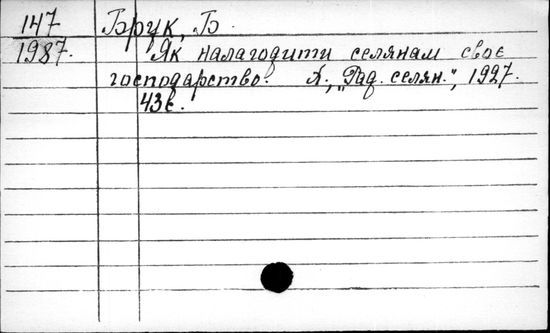 147 Брук, Б.
1987. Як налагодити селянам своє
господарство. Х., „Рад. селян.", 1927.
43с.